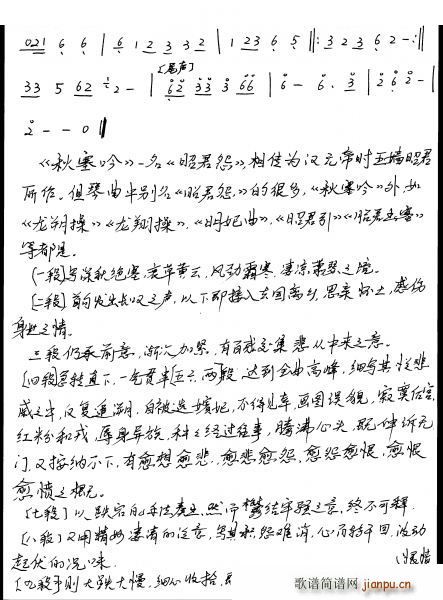 021 6 6 | 6 1 2 3 3 2 | 1 2 3 6 5 ‖: 3 2 3 6 2 - :‖
[尾声]
3 3 5 6 2 1 2 - | 6 2 3 3 3 6 6 | 6 - 6 . 3 | 2 6 2 - |
2 - - 0 ‖
《秋塞吟》一名《昭君怨》,相传为汉元帝时王嫱昭君
所作。但琴曲中别名《昭君怨》的很多,《秋塞吟》外,如
《龙朔操》《龙翔操》,《明妃曲》,《昭君引》《昭君出塞》
等都是。
(一段)写深秋绝塞,衰草黄云,风劲霜寒,凄凉萧瑟之境。
(二段)首句发出长叹之声,以下即接入去国离乡,思亲怀土,感伤
身世之情。
三段仍承前意,渐次加紧,有百感交集悲从中来之意。
(四段)急转直下,一气贯串五六两段,达到全曲高峰,细写其忧悲
之中,反复追溯,自被选嫔妃,不得见幸,画图误貌,寂寞后宫,
红粉和戎,辱身异族,种种经过往事,腾沸心头,既伸诉无
门,又按纳不下,有愈想愈悲,愈悲愈怨,愈怨愈恨,愈恨
愈愤之概。
(七段)以跌宕的手法表出,然而郁结牢骚之意,终不可释
(八段)又用精妙凄清的泛音,写其积怨难消,心肠回,波动
起伏的况味。
(九段)则大跌大慢,细心收拾,
歌谱简谱网
jianpu.cn